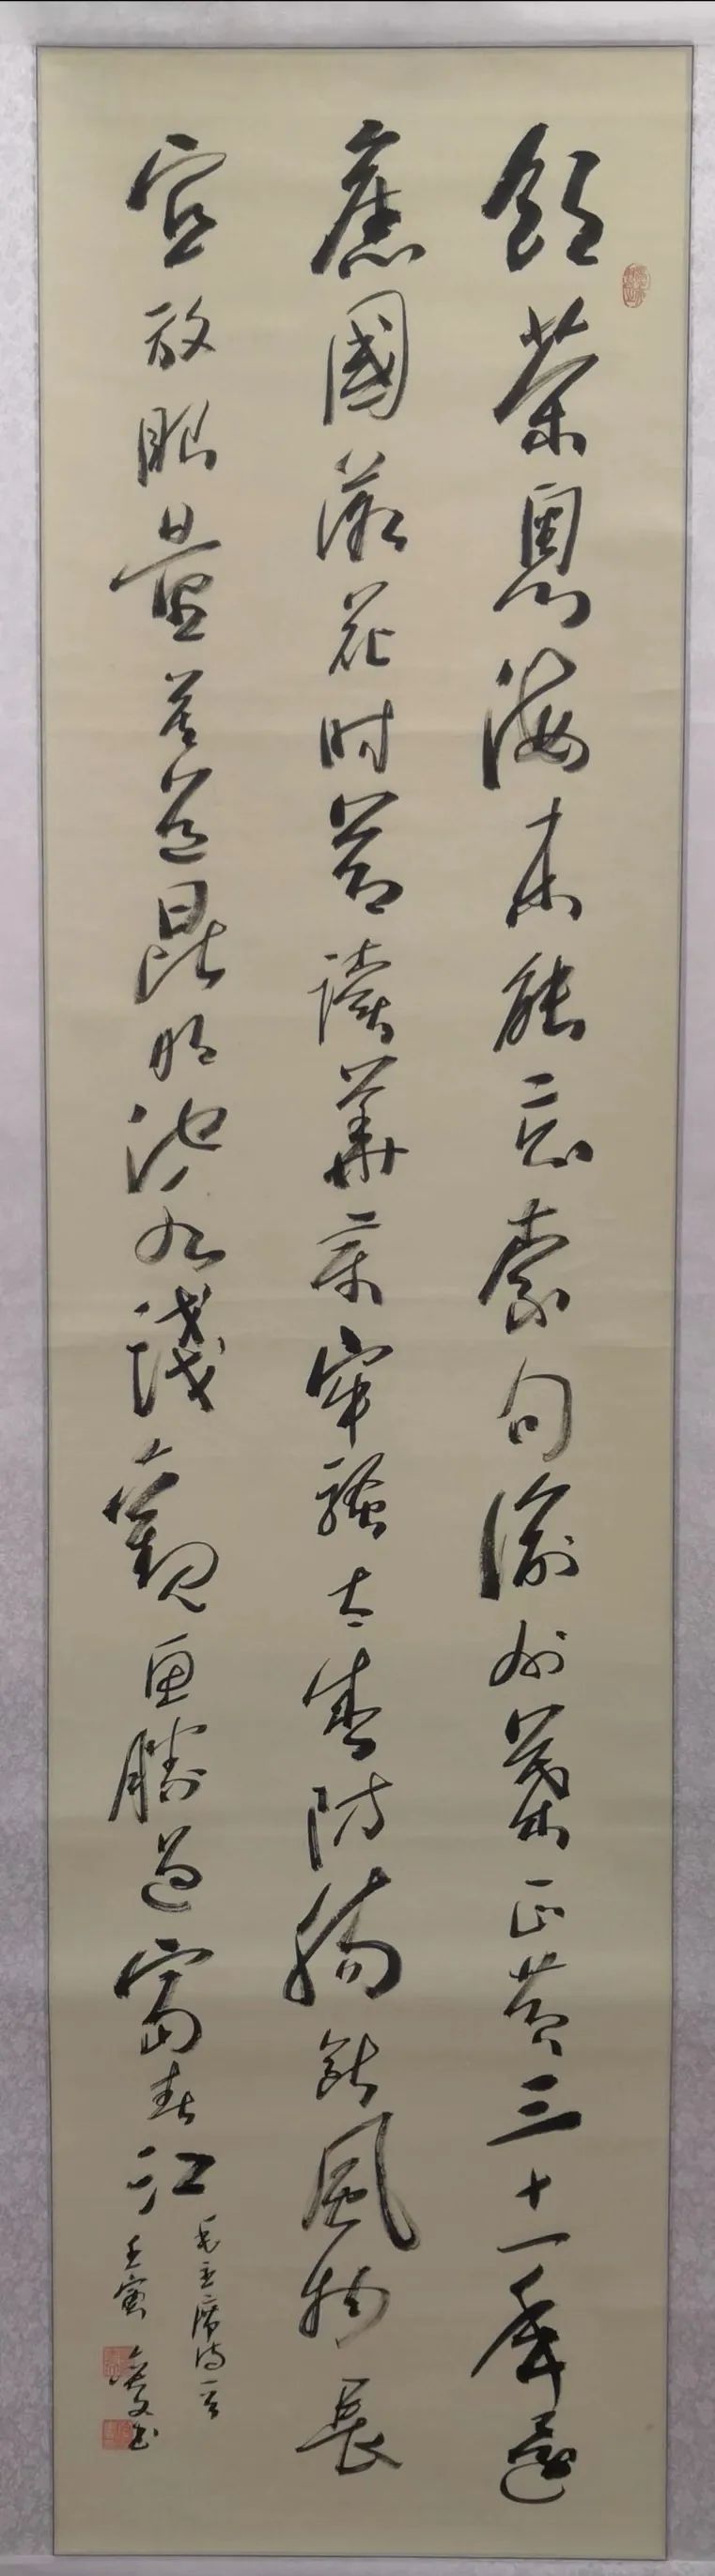 飲茶粵海未能忘索句渝州葉正黃三十一年還
舊國落花时節讀華章牢騷太盛防腸斷風物長
宜放眼量莫道昆明池水淺觀魚勝過富春江
毛主席詩一首
壬寅 書